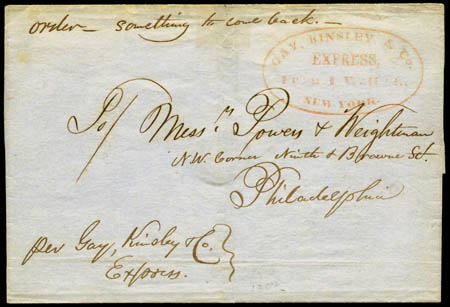 order – something to come back. –
GAY, KINSLEY, & Co.
EXPRESS,
From 1 Wall St.
NEW YORK.
To/ Mess.rs Powers & Weightman
N.W. Corner Ninth & Browne St.
Philadelphia
per Gay, Kinsley & Co.
Express.